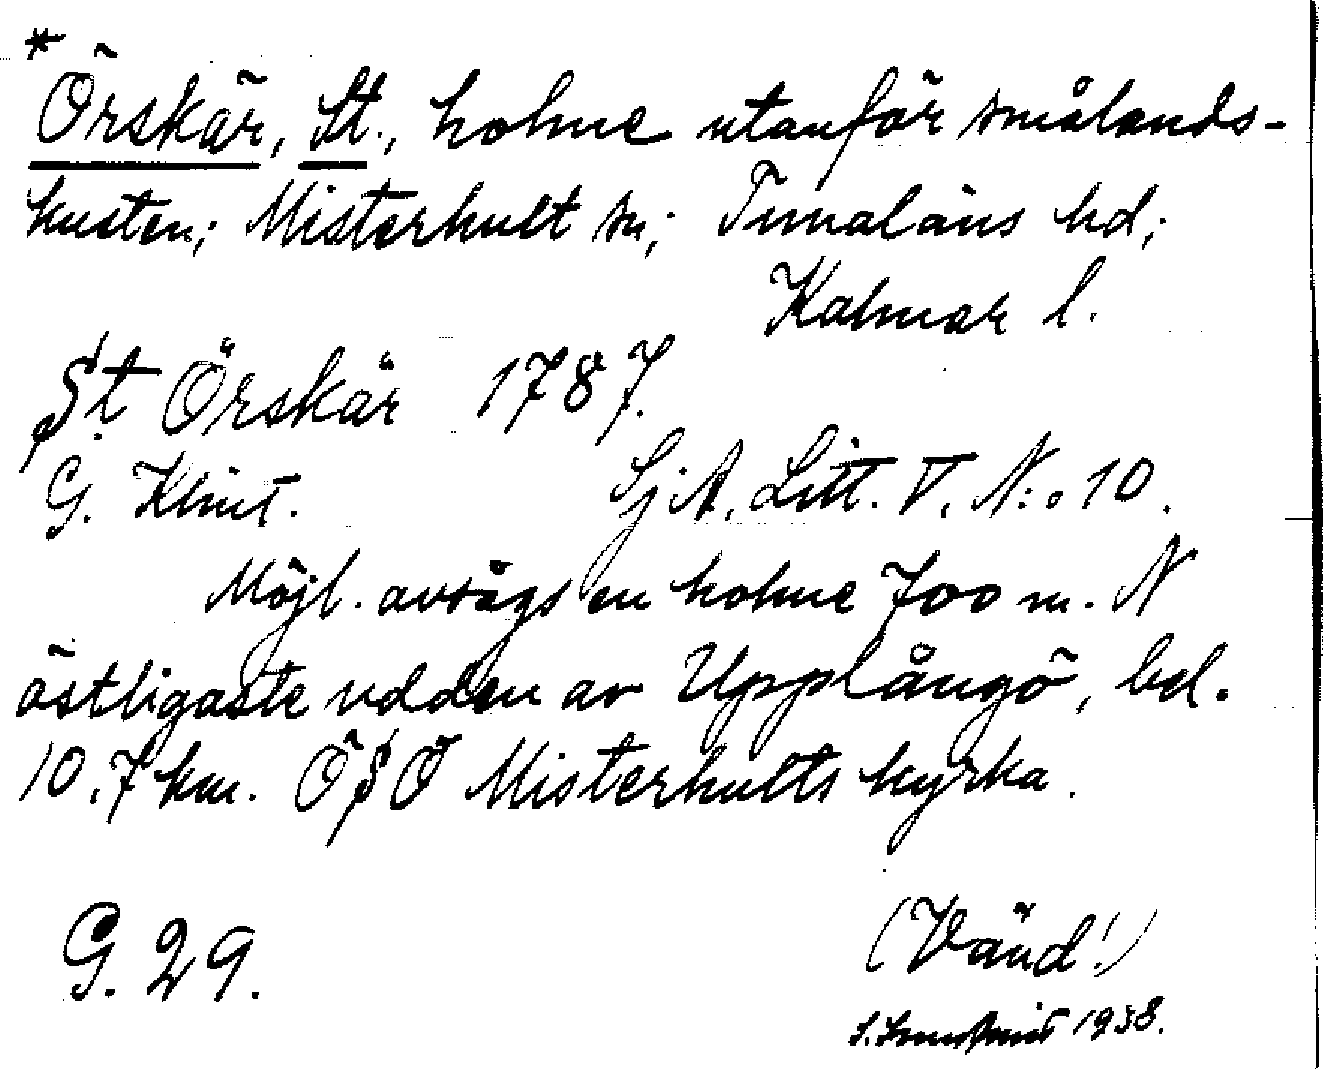 *
Örskär, St., holme utanför smålands-
kusten; Misterhult sn; Tunaläns hd;
Kalmar l.
St Örskär 1787.
G. Klint. SjA, Litt. V. N:o 10.
Möjl. avsågs en holme 700 m. N
östligaste udden av Upplångö, bel.
10.7 km. ÖSÖ Misterhults kyrka.
G. 29. (Vänd!)
1938.